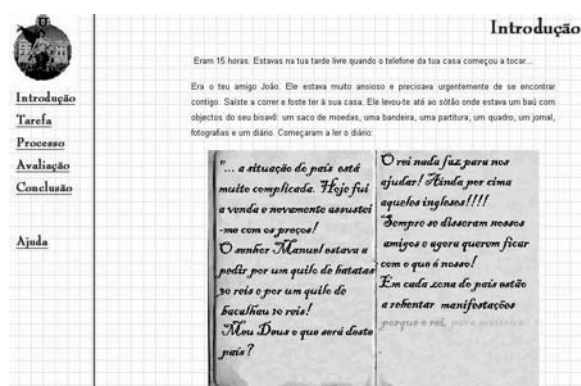 Introdução
Introdução
Tarefa
Processo
Avaliação
Conclusão
Ajuda
Eram 15 horas. Estavas na tua tarde livre quando o telefone da tua casa começou a tocar...
Era o teu amigo João. Ele estava muito ansioso e precisava urgentemente de se encontrar
contigo. Saíste a correr e foste ter à sua casa. Ele levou-te até ao sótão onde estava um baú com
objectos do seu bisavô: um saco de moedas, uma bandeira, uma partitura, um quadro, um jornal,
fotografias e um diário. Começaram a ler o diário:
"... a situação do país está
muito complicada. Hoje fui
a venda e novamente assustei
-me com os preços!
O senhor Manuel estava a
pedir por um quilo de batatas
10 reis e por um quilo de
bacalhau 10 reis!
Meu Deus o que será deste
país?
O rei nada faz para nos
ajudar! Ainda por cima
aqueles ingleses!!!!
Sempre se disseram nossos
amigos e agora querem ficar
com o que é nosso!
Em cada zona do país estão
a rebentar manifestações
porque o rei, para